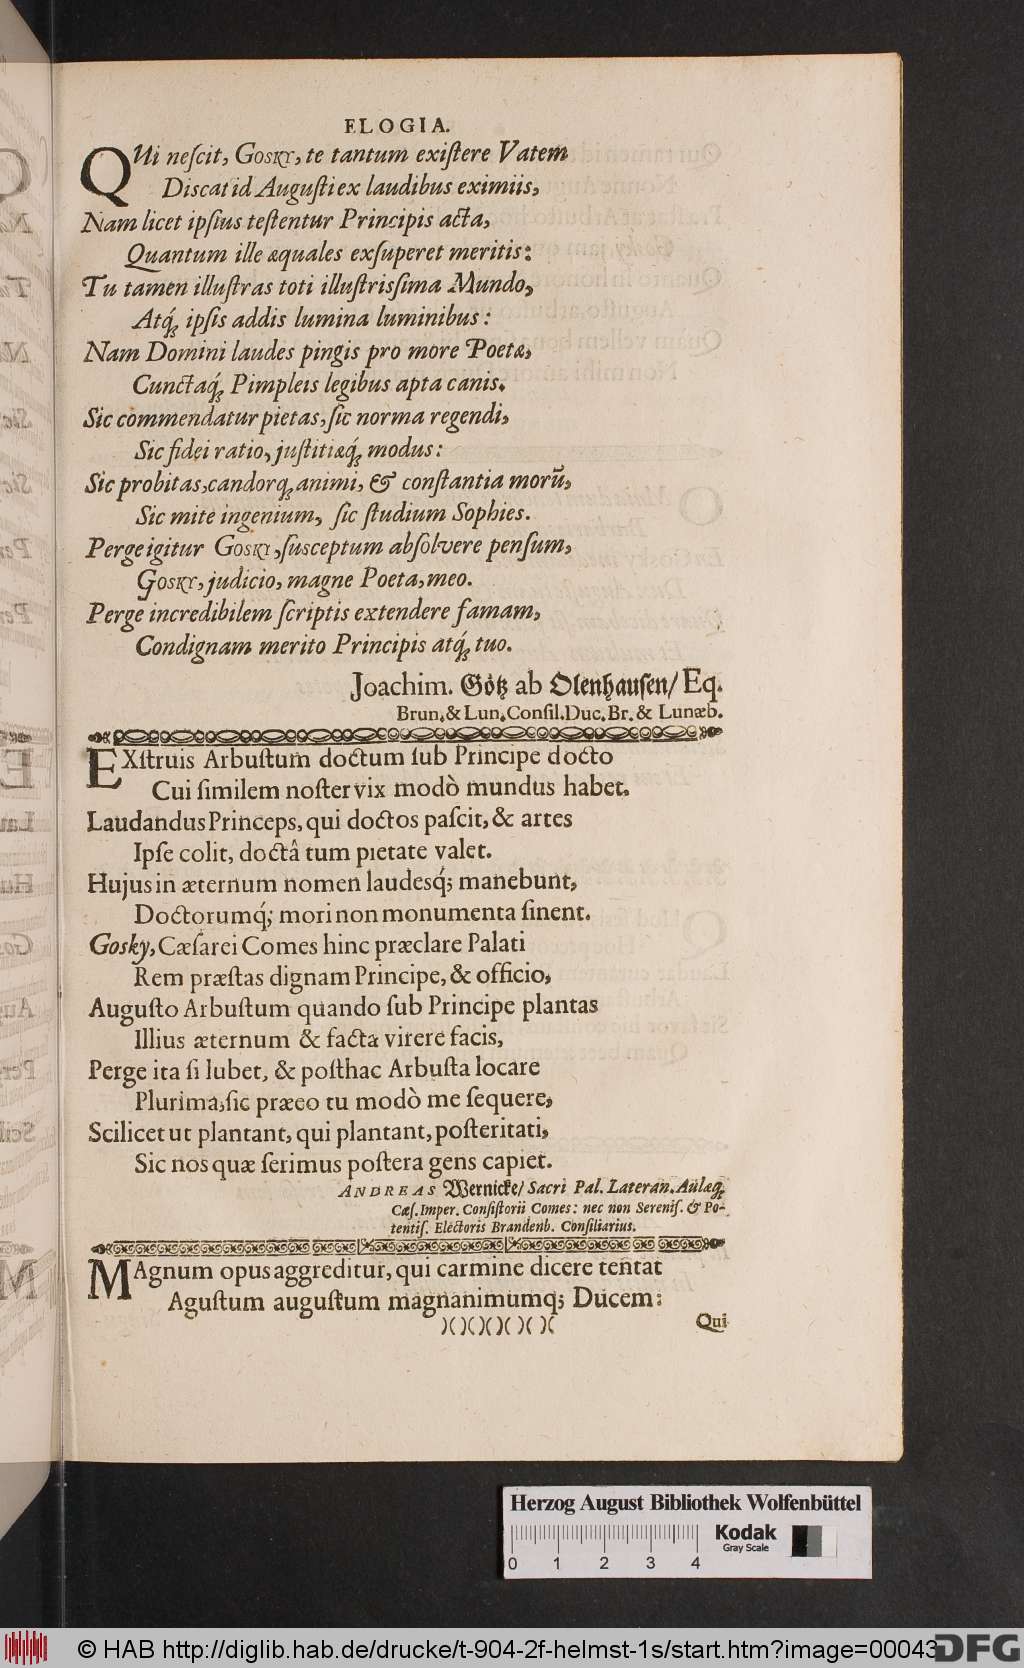 ELOGIA.
QUi neſcit, GOSKY, te tantum exiſtere Vatem
Diſcat id Auguſti ex laudibus eximiis,
Nam licet ipſius teſtentur Principis acta,
Quantum ille æquales exſuperet meritis:
Tu tamen illuſtras toti illuſtrisſima Mundo,
Atq́; ipſis addis lumina luminibus:
Nam Domini laudes pingis pro more Poetæ,
Cunctaq́; Pimpleis legibus apta canis.
Sic commendatur pietas, ſic norma regendi,
Sic fidei ratio, juſtitiæq́; modus:
Sic probitas, candorq; animi, & conſtantia morũ,
Sic mite ingenium, ſic ſtudium Sophies.
Perge igitur GOSKI, ſusceptum abſolvere penſum,
GOSKY, judicio, magne Poeta, meo.
Perge incredibilem ſcriptis extendere famam,
Condignam merito Principis atq́; tuo.
Joachim. Götz ab Olenhauſen/ Eq.
Brun. & Lun. Conſil. Duc. Br. & Lunæb.
EXſtruis Arbuſtum doctum ſub Principe docto
Cui ſimilem noſter vix modò mundus habet.
Laudandus Princeps, qui doctos paſcit, & artes
Ipſe colit, doctâ tum pietate valet.
Hujus in æternum nomen laudesq́; manebunt,
Doctorumq́; mori non monumenta ſinent.
Gosky, Cæſarei Comes hinc præclare Palati
Rem præſtas dignam Principe, & officio,
Auguſto Arbuſtum quando ſub Principe plantas
Illius æternum & facta virere facis,
Perge ita ſi lubet, & poſthac Arbuſta locare
Plurima, ſic præeo tu modò me ſequere,
Scilicet ut plantant, qui plantant, poſteritati,
Sic nos quæ ſerimus poſtera gens capiet.
ANDREAS Wernicke/ Sacri Pal. Lateran. Aulæq́;
Cæſ. Imper. Conſiſtorii Comes: nec non Sereniſ. & Po-
tentiſ. Electoris Brandenb. Conſiliarius.
MAgnum opus aggreditur, qui carmine dicere tentat
Aguſtum auguſtum magnanimumq; Ducem:
)( )( )( )( )( )(
Qui
Herzog August Bibliothek Wolfenbüttel
Kodak
Gray Scale
0 1 2 3 4
© HAB http://diglib.hab.de/drucke/t-904-2f-helmst-1s/start.htm?image=00043
DFG